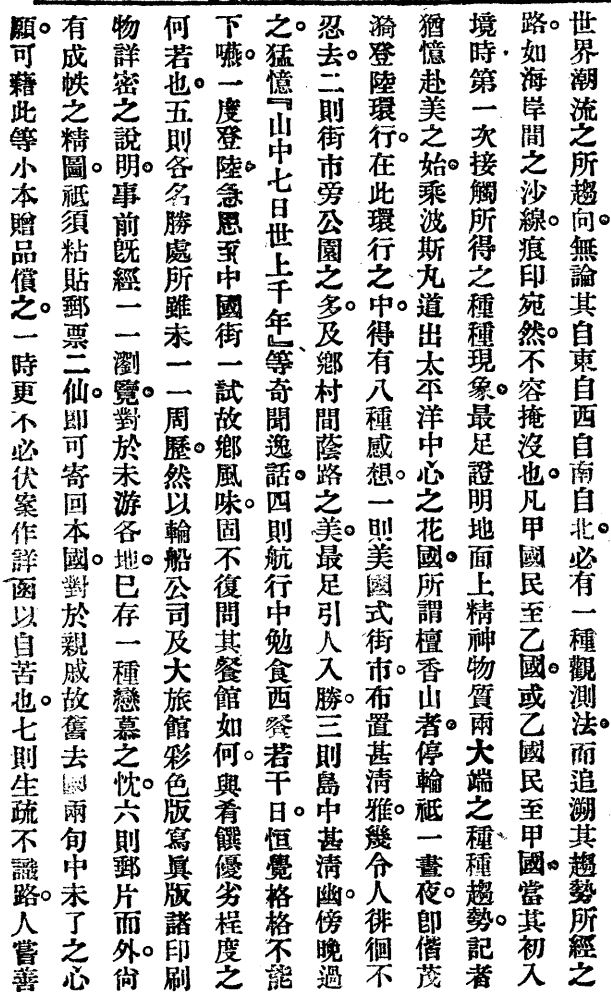 世界潮流之所趨向。無論其自東自西自南自北。必有一種觀測法。而追溯其趨勢所經之
路。如海岸間之沙線。痕印宛然。不容掩沒也。凡甲國民至乙國。或乙國民至甲國。當其初入
境時。第一次接觸所得之種種現象。最足證明地面上精神物質兩大端之種種趨勢。記者
猶憶赴美之始。乘波斯丸道出太平洋中心之花國。所謂檀香山者。停輪祗一晝夜。卽偕茂
漪登陸環行。在此環行之中。得有八種感想。一則美國式街市。布置甚清雅。幾令人徘徊不
忍去。二則街市旁公園之多。及鄉村間蔭路之美。最足引人入勝。三則島中甚清幽。傍晚過
之。猛憶『山中七日世上千年』等奇聞逸話。四則航行中勉食西餐若干日。恒覺格格不能
下嚥。一度登陸。急思至中國街一試故鄉風味。固不復問其餐館如何。與肴饌優劣程度之
何若也。五則各名勝處所雖未一一周歷。然以輪船公司及大旅館彩色版寫眞版諸印刷
物詳密之說明。事前旣經一一瀏覽。對於未游各地。已存一種戀慕之忱。六則郵片而外。尙
有成帙之精圖。祗須粘貼郵票二仙。卽可寄回本國。對於親戚故舊去國兩旬中未了之心
願。可藉此等小本贈品償之。一時更不必伏案作詳函以自苦也。七則生疏不識路。人嘗善